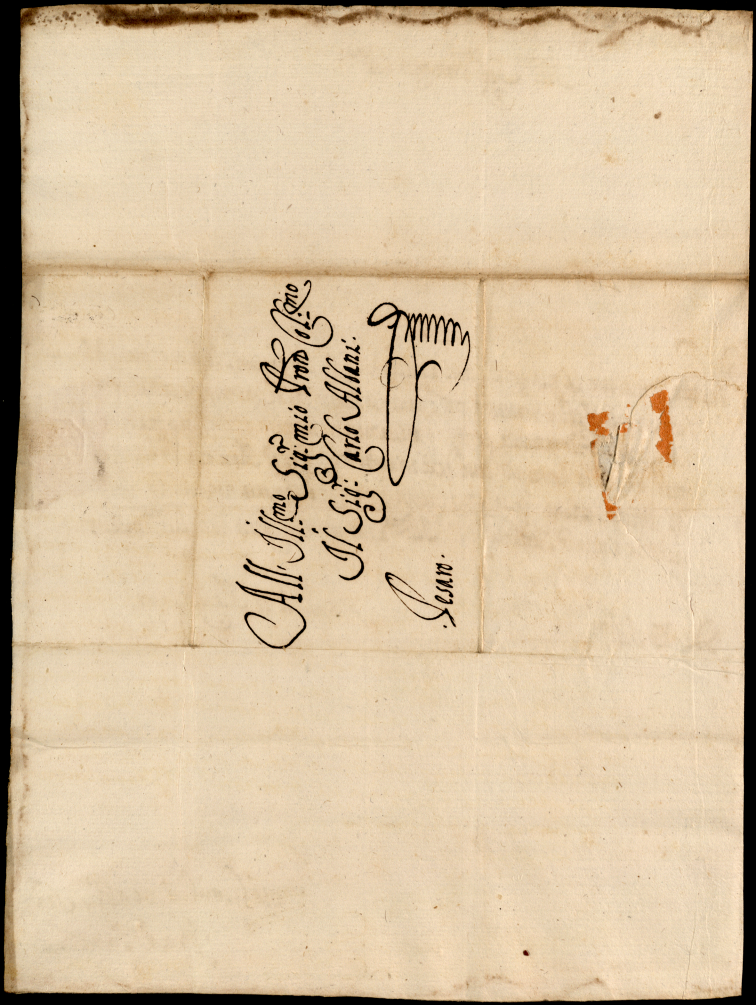 All' Ill.mo Sig.r mio Pron Col.mo
Il Sig.r Carlo Albani.
Pesaro.